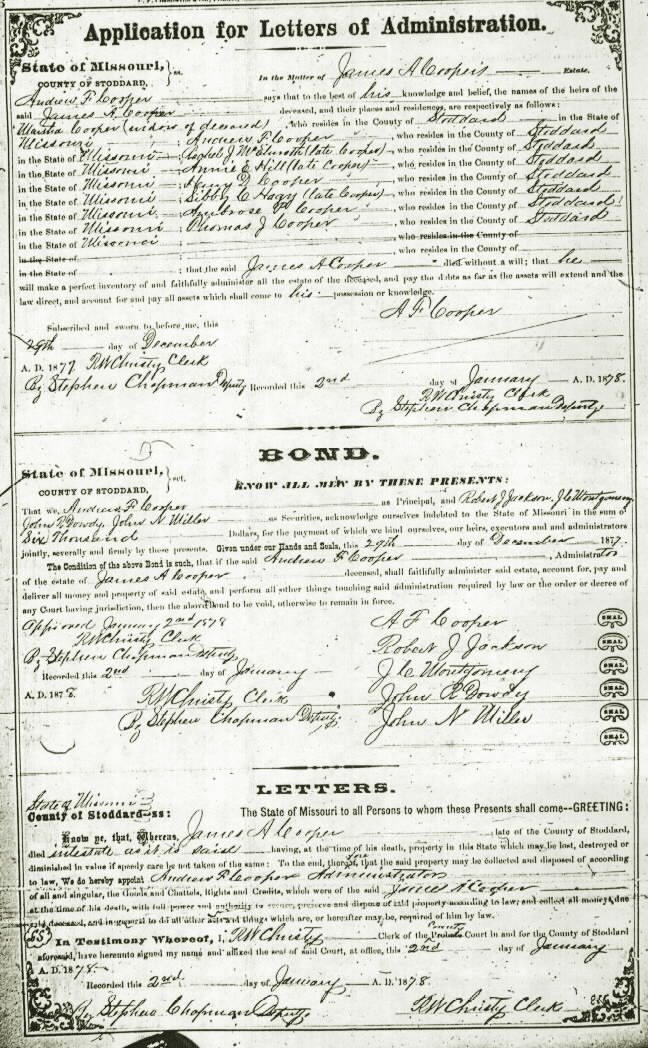 Application for Letters of Administration.
State of Missouri, } ss.
COUNTY OF STODDARD,
In the Matter of James A Cooper's Estate.
Andrew F Cooper says that to the best of his knowledge and belief, the names of the heirs of the
said James A Cooper deceased, and their places and residences, are respectively as follows:
Martha Cooper (widow of deceased) who resides in County of Stoddard in the State of
Missouri ; Andrew F Cooper , who resides in the County of Stoddard
in the State of Missouri ; J McElmath (late Cooper) , who resides in the County of Stoddard
in the State of Missouri ; Annie E Hill (late Cooper) , who resides in the County of Stoddard
in the State of Missouri ; Cooper , who resides in the County of Stoddard
in the State of Missouri ; C Hagy (late Cooper) , who resides in the County of Stoddard
in the State of Missouri ; Ambrose P Cooper , who resides in the County of Stoddard
in the State of Missouri ; Thomas J Cooper , who resides in the County of Stoddard
in the State of Missouri , who resides in the County of
in the State of , who resides in the County of
in the State of ; that the said James A Cooper died without a will; that he
will make a perfect inventory of and faithfully administer all the estate of the deceased, and pay the debts as far as the assets will extend and the
law direct, and account for and pay all assets which shall come to his possession or knowledge.
A F Cooper
Subscribed and sworn to before me, this
29th day of December
A. D. 1877 RW Christy Clerk
By Stephen Chapman Deputy Recorded this 2nd day of January A. D. 1878.
RW Christy Clerk
By Stephen Chapman Deputy
BOND.
State of Missouri, } sct.
COUNTY OF STODDARD,
KNOW ALL MEN BY THESE PRESENTS:
That we, Andrew F Cooper as Principal, and Robert J Jackson, J C Montgomery
John R Dowdy, John N Miller as Securities, acknowledge ourselves indebted to the State of Missouri in the sum of
Six Thousand Dollars, for the payment of which we bind ourselves, our heirs, executors and administrators
jointly, severally and firmly by these presents. Given under our Hands and Seals, this 29th day of December 1877.
The Condition of the above Bond is such, that if the said Andrew F Cooper , Administrator
of the estate of James A Cooper deceased, shall faithfully administer said estate, account for, pay and
deliver all money and property of said estate, and perform all other things touching said administration required by law or the order or decree of
any Court having jurisdiction, then the above bond to be void, otherwise to remain in force.
Approved January 2nd 1878
RW Christy Clerk
By Stephen Chapman Deputy
Recorded this 2nd day of January
A. D. 1878. RW Christy Clerk
By Stephen Chapman Deputy.
A F Cooper SEAL
Robert J Jackson SEAL
J C Montgomery SEAL
John R Dowdy SEAL
John N Miller SEAL
SEAL
LETTERS.
State of Missouri
County of Stoddard--ss:
The State of Missouri to all Persons to whom these Presents shall come--GREETING:
Know ye, that, Whereas, James A Cooper late of the County of Stoddard,
died intestate as it is said having, at the time of his death, property in this State which may be lost, destroyed or
diminished in value if speedy care be not taken of the same: To the end, therefore, that the said property may be collected and disposed of according
to law, We do hereby appoint Andrew F Cooper Administrator
of all and singular, the Goods and Chattels, Rights and Credits, which were of the said James A Cooper
at the time of his death, with full power and authority to secure, preserve and dispose of said property according to law, and collect all moneys due
said deceased, and in general to do all other acts and things which are, or hereafter may be, required of him by law.
In Testimony Whereof, I, RW Christy Clerk of the County Probate Court in and for the County of Stoddard
aforesaid, have hereunto signed my name and affixed the seal of said Court, at office, this 2nd day of January
A. D. 1878.
Recorded this 2nd day of January A. D. 1878.
By Stephen Chapman Deputy RW Christy Clerk